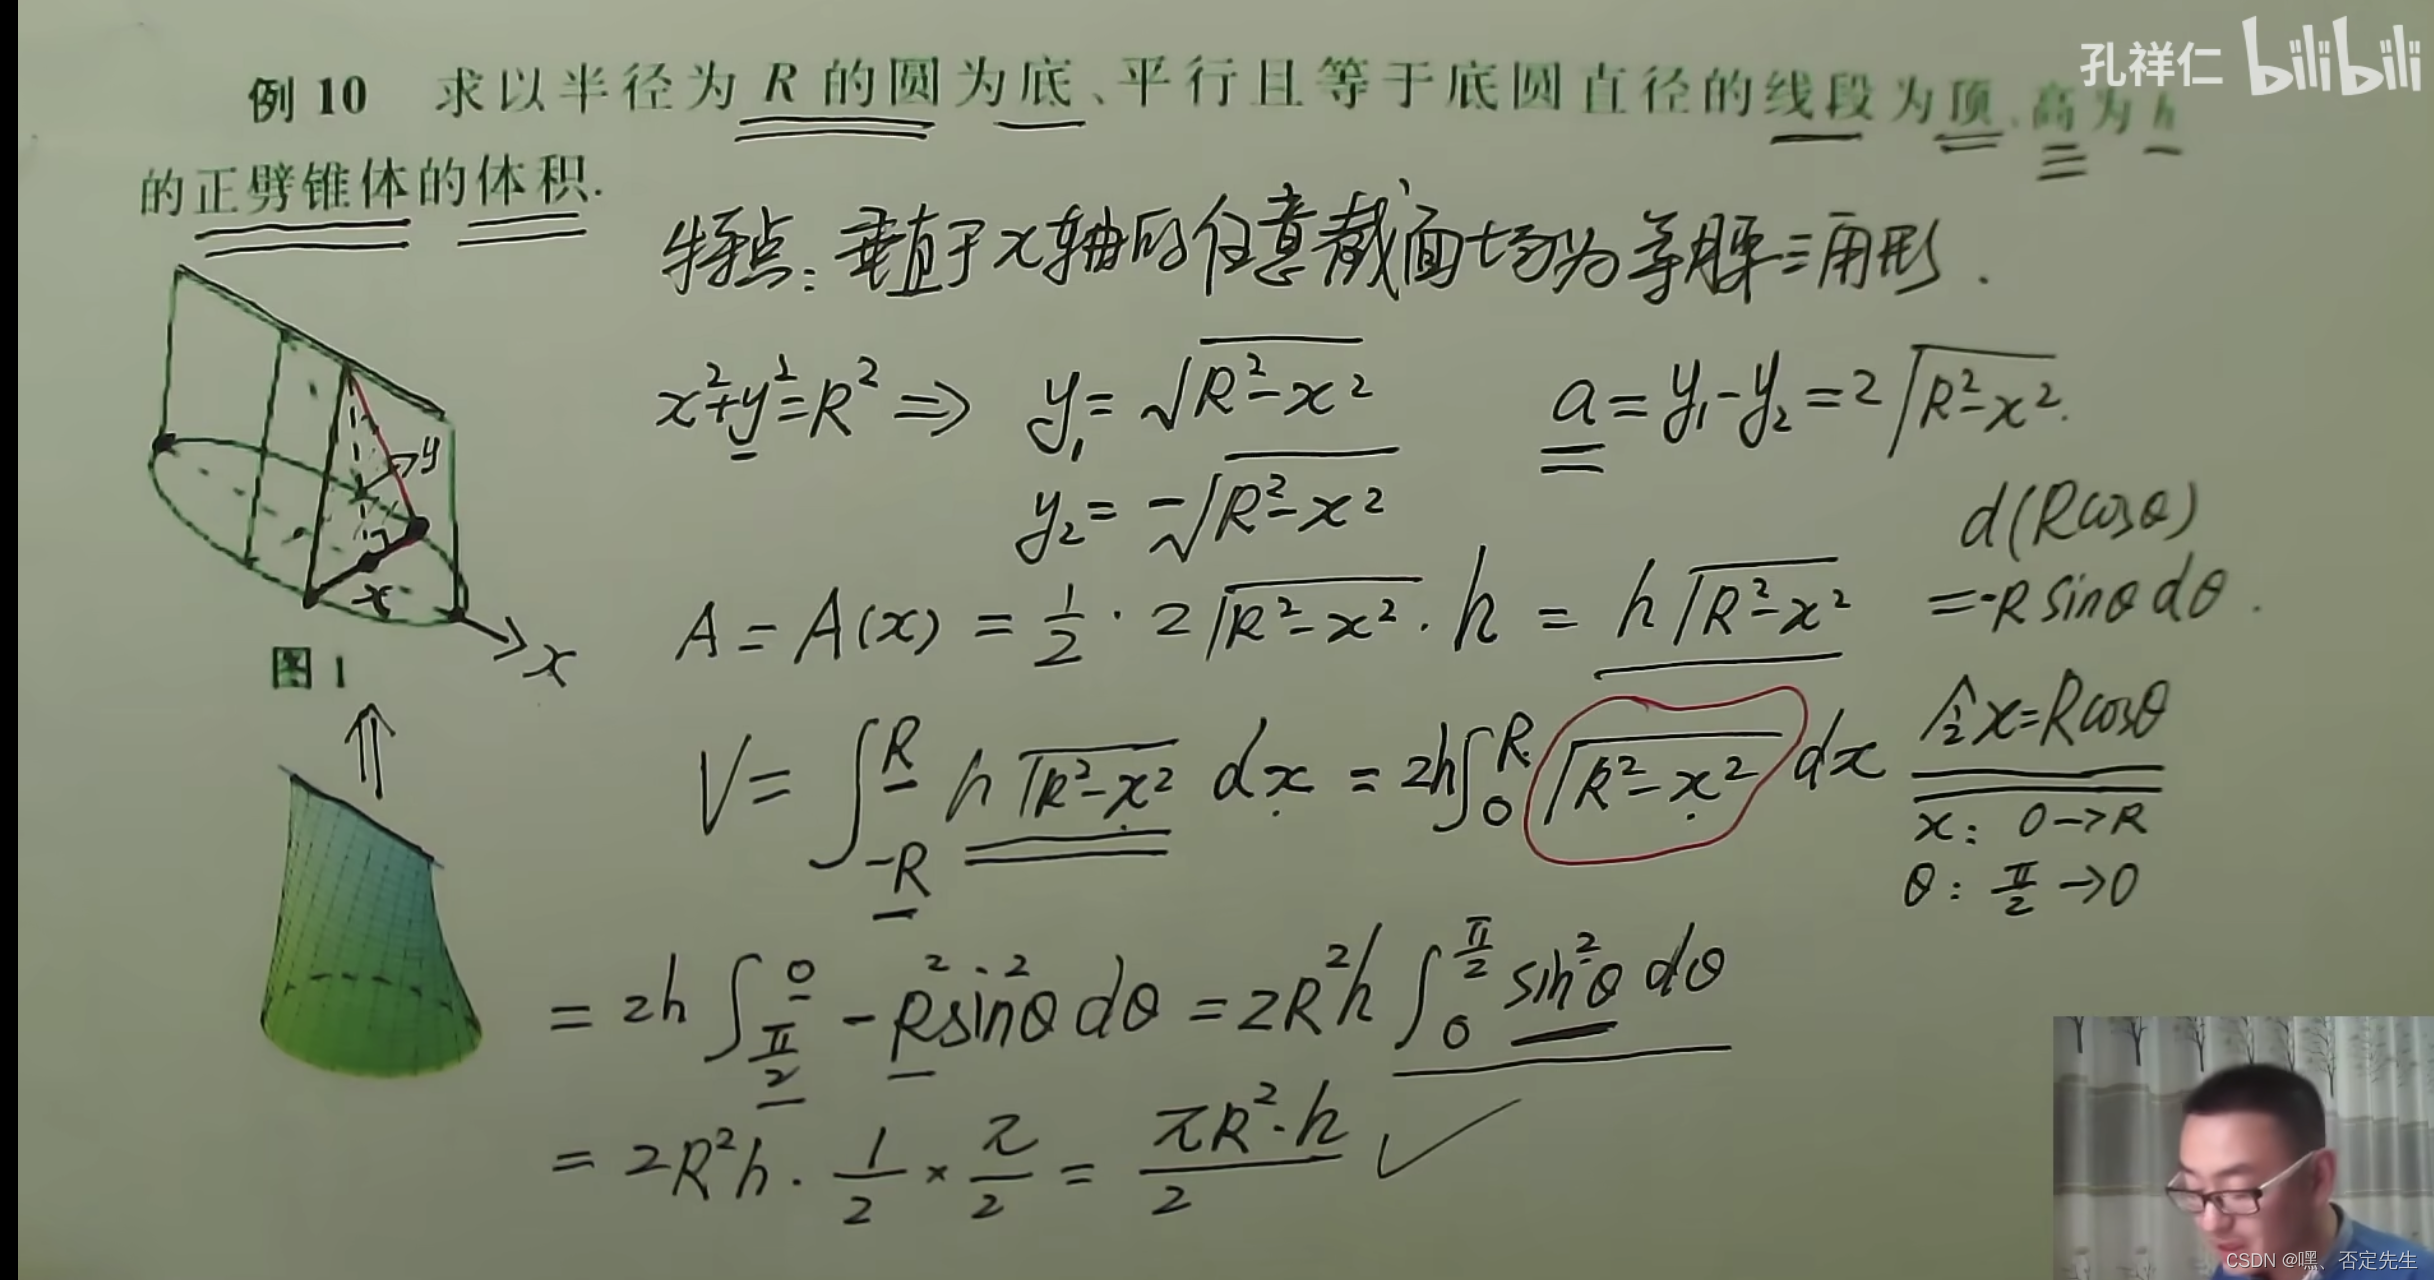 孔祥仁 bilibili
例 10 求以半径为 R 的圆为底、平行且等于底圆直径的线段为顶、高为 h
的正劈锥体的体积.
特点：垂直于x轴的任意截面均为等腰三角形.
x²+y²=R² ⇒ y₁=√(R²-x²) a=y₁-y₂=2√(R²-x²).
y
y₂=-√(R²-x²)
d(Rcosθ)
=-R sinθ dθ.
x
A=A(x)=1/2·2√(R²-x²)·h=h√(R²-x²)
x
图 1
V=∫_{-R}^{R} h√(R²-x²) dx=2h∫_0^R √(R²-x²) dx 令x=Rcosθ
x: 0→R
θ: π/2→0
=2h∫_{π/2}^{0} -R²sin²θ dθ=2R²h∫_0^{π/2} sin²θ dθ
=2R²h·1/2×π/2=πR²·h/2 ✓
CSDN @嘿、否定先生